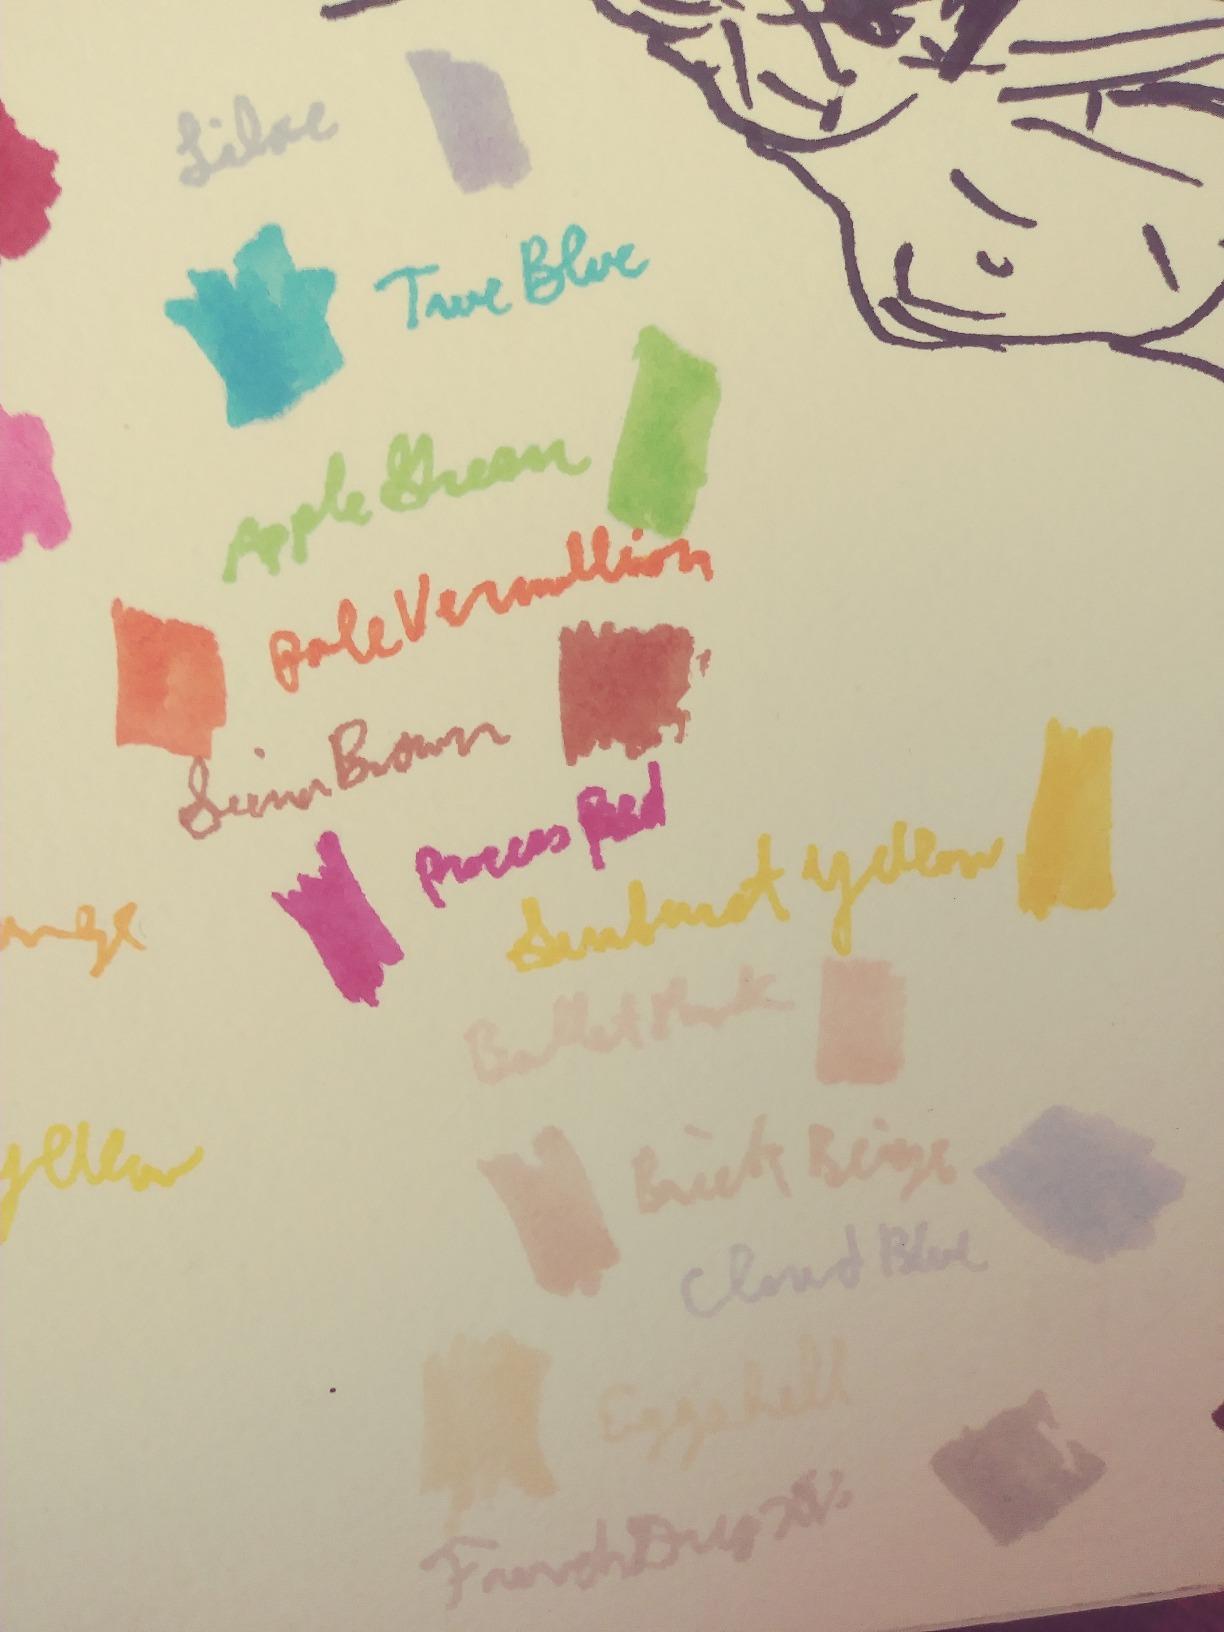 Lilac
True Blue
Apple Green
pale Vermillion
Brown
process Red
Sunburst yellow
ange
Ballet Pink
yellow
Brick Beige
Cloud Blue
Eggshell
French Grey